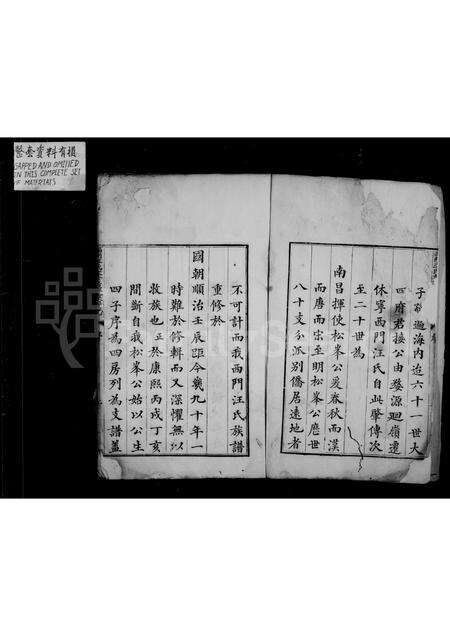 整套資料有損
GAPPED AND OMITTED
IN THIS COMPLETE SET
OF MATERIALS
子孫遍海内迨六十一世大
四府君接公由婺源迴嶺遷
休寧西門汪氏自此肇傳次
至二十世為
南昌揮使松峯公爰春秋而漢
而唐而宋至明松峯公歷世
八十支分派别僑居遠地者
不可計而我西門汪氏族譜
重修於
國朝順治壬辰距今幾九十年一
時難於修輯而又深懼無以
收族也正於康熙丙戌丁亥
間斷自我松峯公始以公生
四子序為四房列為支譜蓋